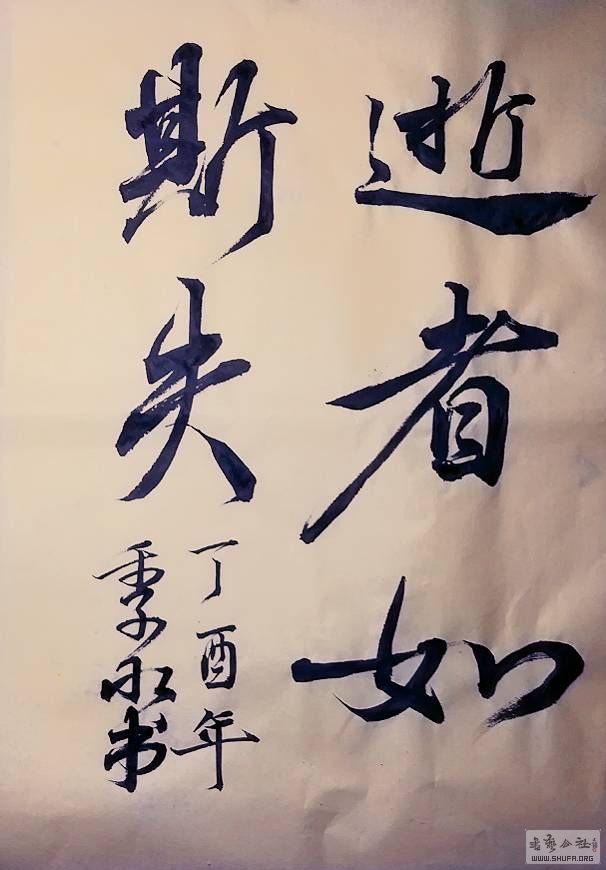 逝者如
斯失
丁酉年
季书
書藝公社
WWW.SHUFA.ORG